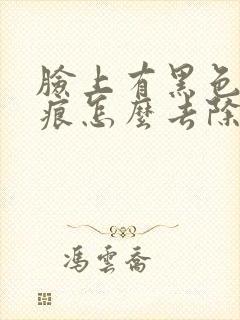 臉上有黑色
痕怎麼去除
馮雲喬